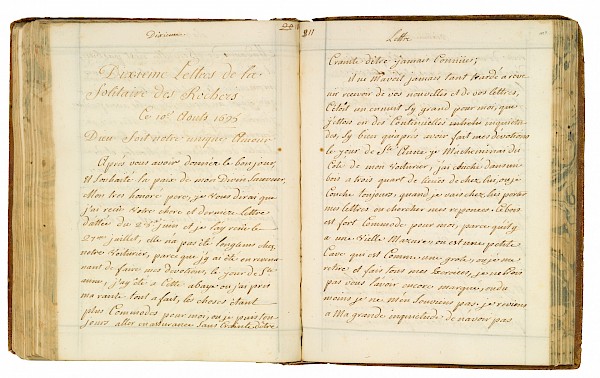 Dixieme
Dixieme Lettres de la
Solitaire des Rochers
Ce 10e Aouts 1695
Dieu Soit notre unique Amour
Aprés vous avoir donner le bonjour,
et souhaité la paix de mon Divin Sauveur,
Mon tres honoré pere, je vous dirai que
j'ai recû votre chere et derniere lettre
dattée du 25e juin et je l'ay recû le
27me juillet, elle n'a pas été longtems chez
notre voiturier, parce que j'y ai été en revenant
nant de faire mes devotions, le jour de Ste
anne, j'ay été a Cette abaye ou j'ai pris
ma route tout a fait, les choses étant
plus Commodes pour moi, ou je puis tou-
jours aller en assurance Sans Crainte d'être
Lettre
Crainte d'être jamais Connüe;
il ne m'avoit jamais tant tardé a
recevoir de vos nouvelles et de vos lettres,
C'etoit un ennuit Sy grand pour moi, que
j'ettois en des Continuelles inquietu-
des Sy bien qu'aprés avoir fait mes devotions
le jour de Ste Anne je M'acheminai du
Coté de mon Voiturier, j'ai couché dans un
bois a trois quart de lieües de chez lui, ou je
Couche toujours, quand je vais chez lui porter
mes lettres ou chercher mes reponces. Ce bois
est fort Commode pour moi, parce qu'il y
a une Vielle Mazure, ou est une petite
Cave qui est Comme une grote, ou je me
retire et fais tous mes Exercices, je ne Crois
pas vous l'avoir encore marqué, ou du
moins je ne m'en Souviens pas, je reviens
a Ma grande inquietude de n'avoir pas